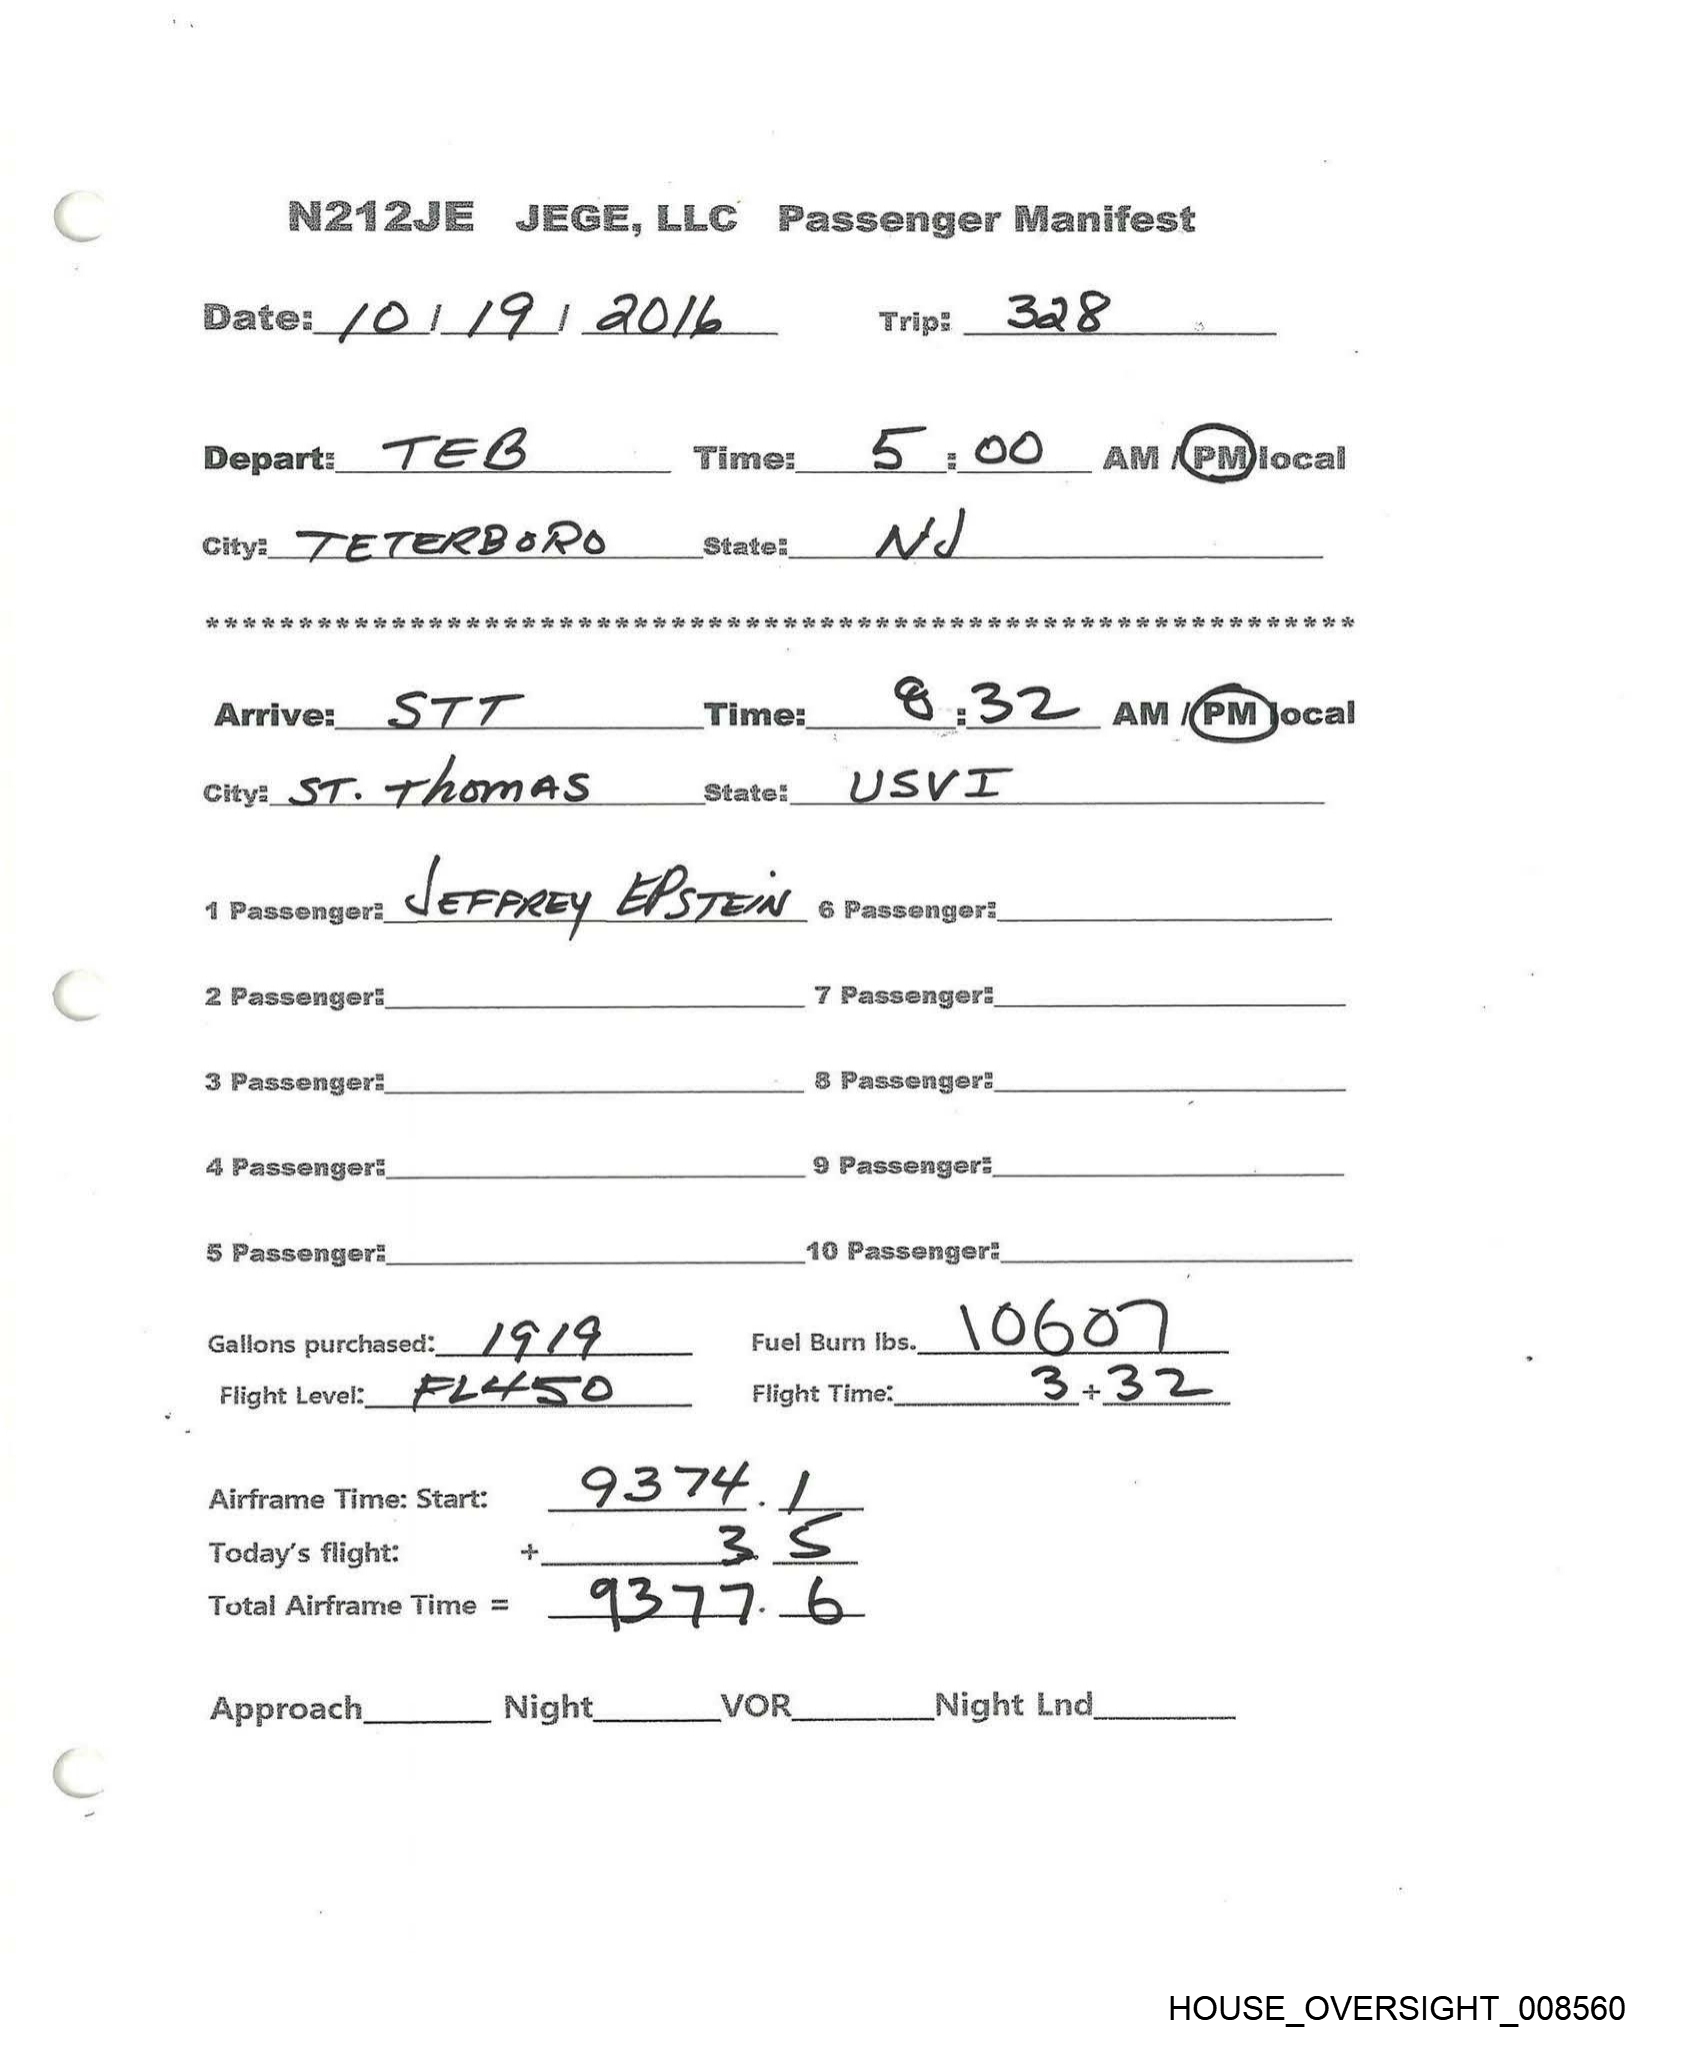 N212JE JEGE, LLC Passenger Manifest
Date: 10 / 19 / 2016 Trip: 328
Depart: TEB Time: 5 : 00 AM / PM local
City: TETERBORO State: NJ
**************************************************************
Arrive: STT Time: 8 : 32 AM / PM local
City: ST. Thomas State: USVI
1 Passenger: JEFFREY EPSTEIN 6 Passenger:
2 Passenger: 7 Passenger:
3 Passenger: 8 Passenger:
4 Passenger: 9 Passenger:
5 Passenger: 10 Passenger:
Gallons purchased: 1919 Fuel Burn lbs. 10607
Flight Level: FL450 Flight Time: 3 + 32
Airframe Time: Start: 9374 . 1
Today's flight: + 3. 5
Total Airframe Time = 9377. 6
Approach Night VOR Night Lnd
HOUSE_OVERSIGHT_008560